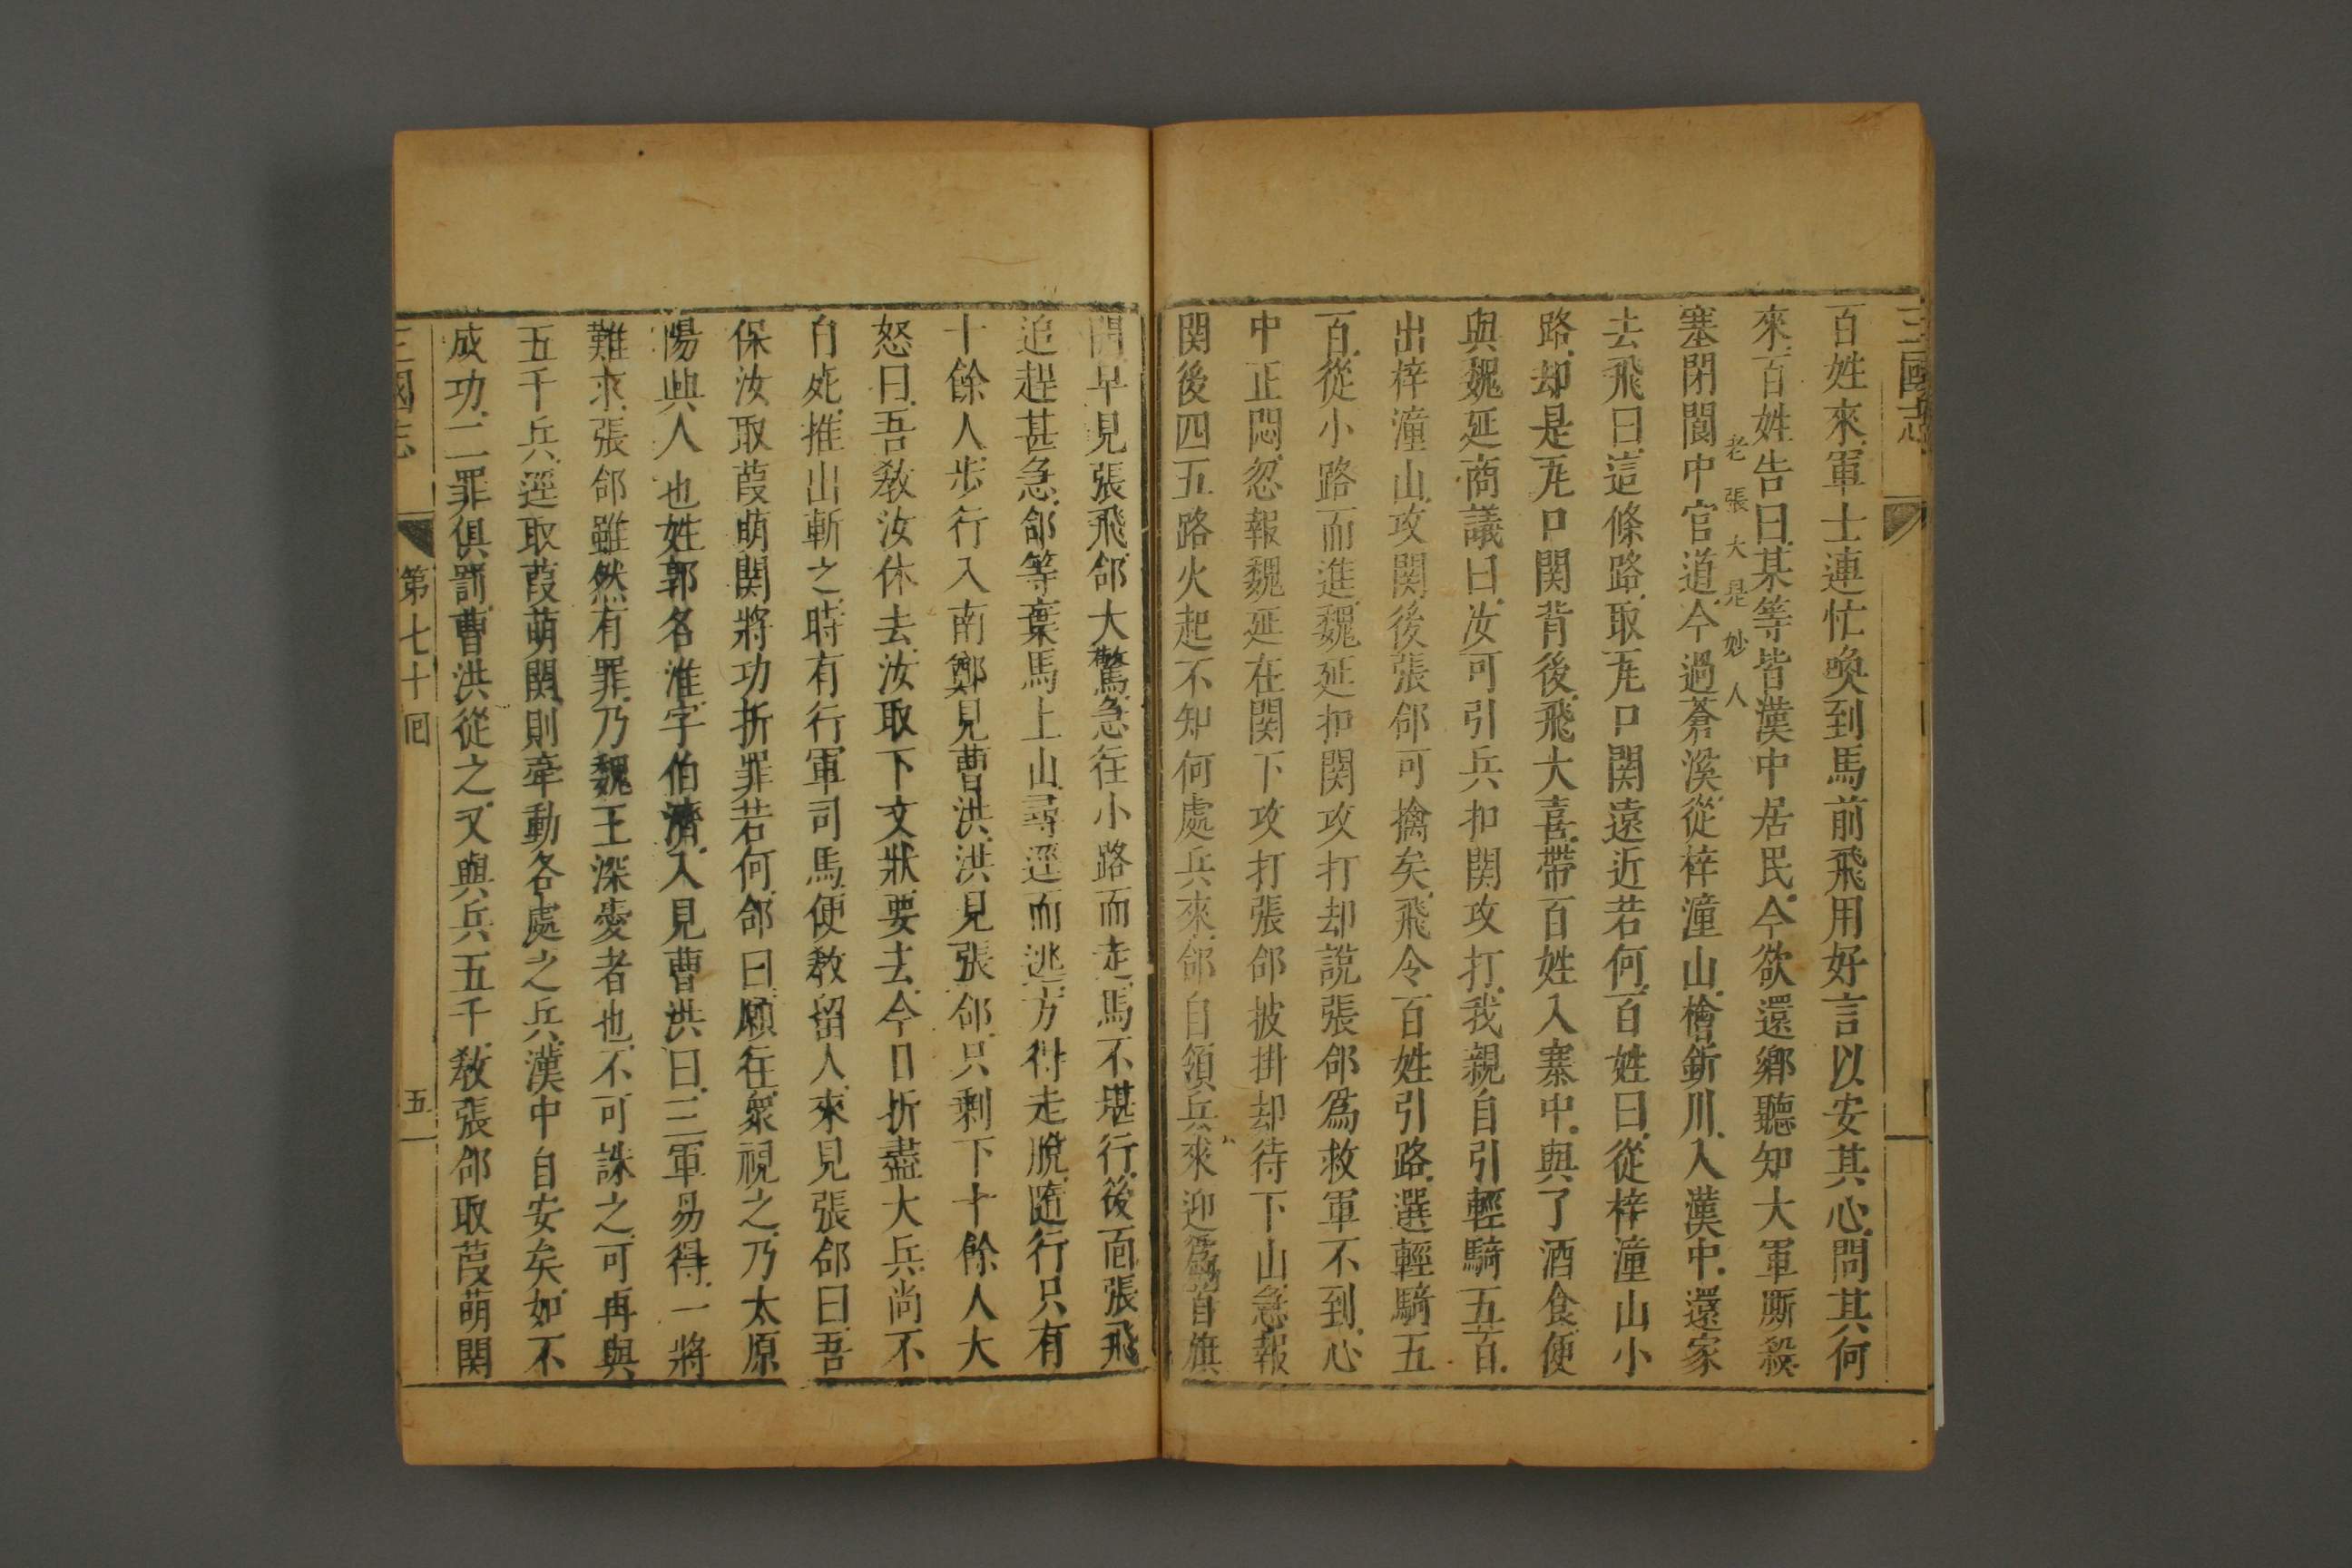 三國志
百姓來軍士連忙喚到馬前飛用好言以安其心問其何
來百姓告曰某等皆漢中居民今欲還鄉聽知大軍厮殺
老張大是妙人
塞閉閬中官道今過蒼溪從梓潼山檜釿川入漢中還家
去飛曰這條路取瓦口関遠近若何百姓曰從梓潼山小
路却是瓦口関背後飛大喜帶百姓入寨中與了酒食便
與魏延商議曰汝可引兵扣関攻打我親自引輕騎五百
出梓潼山攻関後張郃可擒矣飛令百姓引路選輕騎五
百從小路而進魏延扣関攻打却說張郃爲救軍不到心
中正悶忽報魏延在関下攻打張郃披掛却待下山急報
関後四五路火起不知何處兵來郃自領兵來迎爲首旗
開早見張飛郃大驚急往小路而走馬不堪行後面張飛
追趕甚急郃等棄馬上山尋逕而逃方得走脫隨行只有
十餘人步行入南鄭見曹洪洪見張郃只剩下十餘人大
怒曰吾教汝休去汝取下文狀要去今日折盡大兵尚不
自死推出斬之時有行軍司馬便教留人來見張郃曰吾
保汝取葭萌関將功折罪若何郃曰願往衆視之乃太原
陽與人也姓郭名淮字伯濟入見曹洪曰三軍易得一將
難求張郃雖然有罪乃魏王深愛者也不可誅之可再與
五千兵逕取葭萌関則牽動各處之兵漢中自安矣如不
成功二罪俱罰曹洪從之又與兵五千教張郃取葭萌関
三國志
第七十回
五